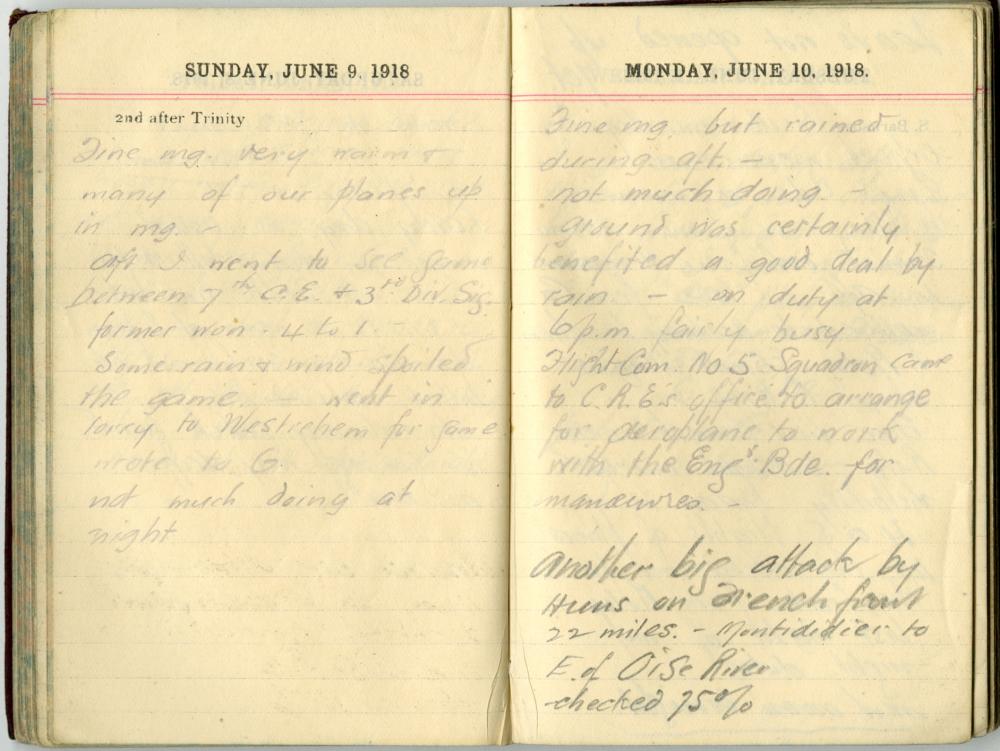 SUNDAY, JUNE 9, 1918
2nd after Trinity
Fine mg. very warm &
many of our planes up
in mg. -
aft I went to see game
between 7th C.E. & 3rd Div. Sig.
former won - 4 to 1.
Some rain & wind spoiled
the game — went in
lorry to Westrehem for game
wrote to G.
not much doing at
night
MONDAY, JUNE 10, 1918.
Fine mg. but rained
during aft. —
not much doing -
ground was certainly
benefited a good deal by
rain — on duty at
6 p.m. fairly busy
Flight Com. No 5 Squadron came
to C.R.E's office to arrange
for aeroplane to work
with the Engs. Bde. for
manœuvres. -
Another big attack by
Huns on French front
22 miles. - Montididier to
E. of Oise River
-checked 75%